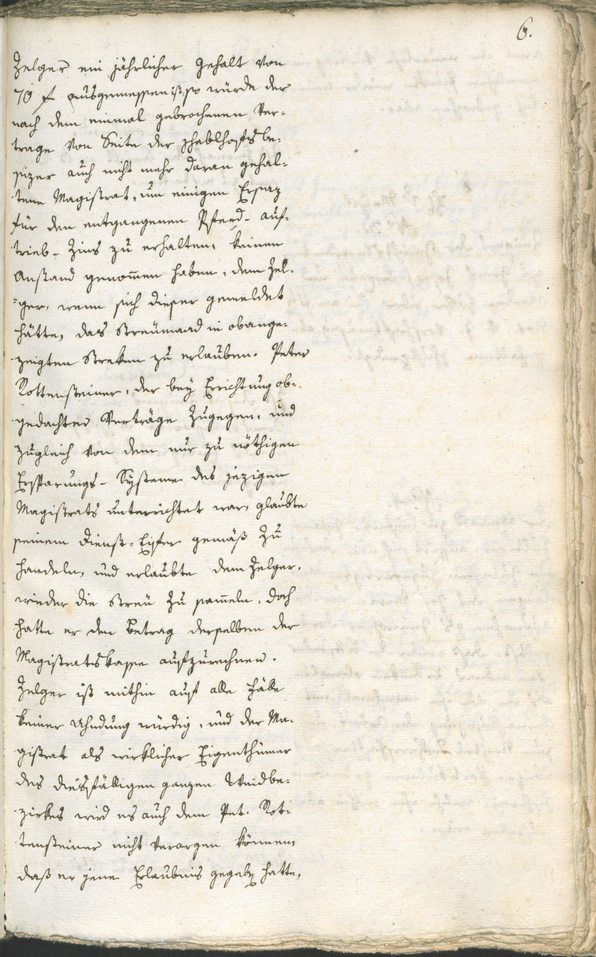 6.
Zelger ein jährlicher Gehalt von
70 f ausgemessen ist, so würde der
nach dem einmal gebrochenen Ver-
trage von Seite der sbe-
sizer auch nicht mehr daran gehal-
tene Magistrat, um einigen Ersaz
für den entgangenen Pferd-auf-
trieb-Zins zu erhalten, keinen
Anstand genommen haben, dem Zel-
ger, wenn sich dieser gemeldet
hätte, das Streumaad in obange-
zeigten Streken zu erlauben. Peter
Rottensteiner, der bey Errichtung ob-
gedachter Verträge zugegen, und
zugleich von dem nur zu nöthigen
Ersparungs-Systeme des jezigen
Magistrats unterrichtet war, glaubte
seinem Dienst-Eifer gemäß zu
handeln, und erlaubte dem Zelger,
wieder die Streu zu sammeln. Doch
hatte er den Betrag derselben der
Magistratskasse aufzurechnen.
Zelger ist mithin auf alle Fälle
keiner Ahndung würdig, und der Ma-
gistrat als wirklicher Eigenthümer
des diesfälligen ganzen Weidbe-
zirkes wird es auch dem Pet. Rot-
tensteiner nicht verargen können,
daß er jene Erlaubnis gegeben hatte,